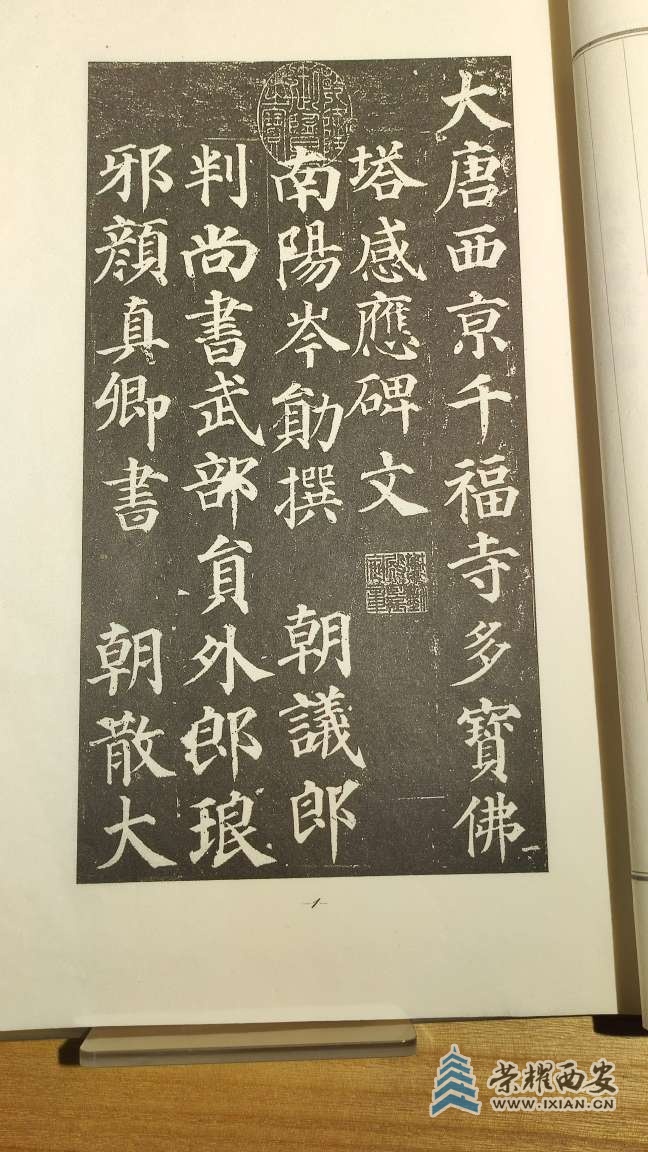 大唐西京千福寺多寳佛
塔感應碑文
南陽岑勛撰 朝議郎
判尚書武部貟外郎琅
邪顔真卿書 朝散大
1
荣耀西安
WWW.IXIAN.CN